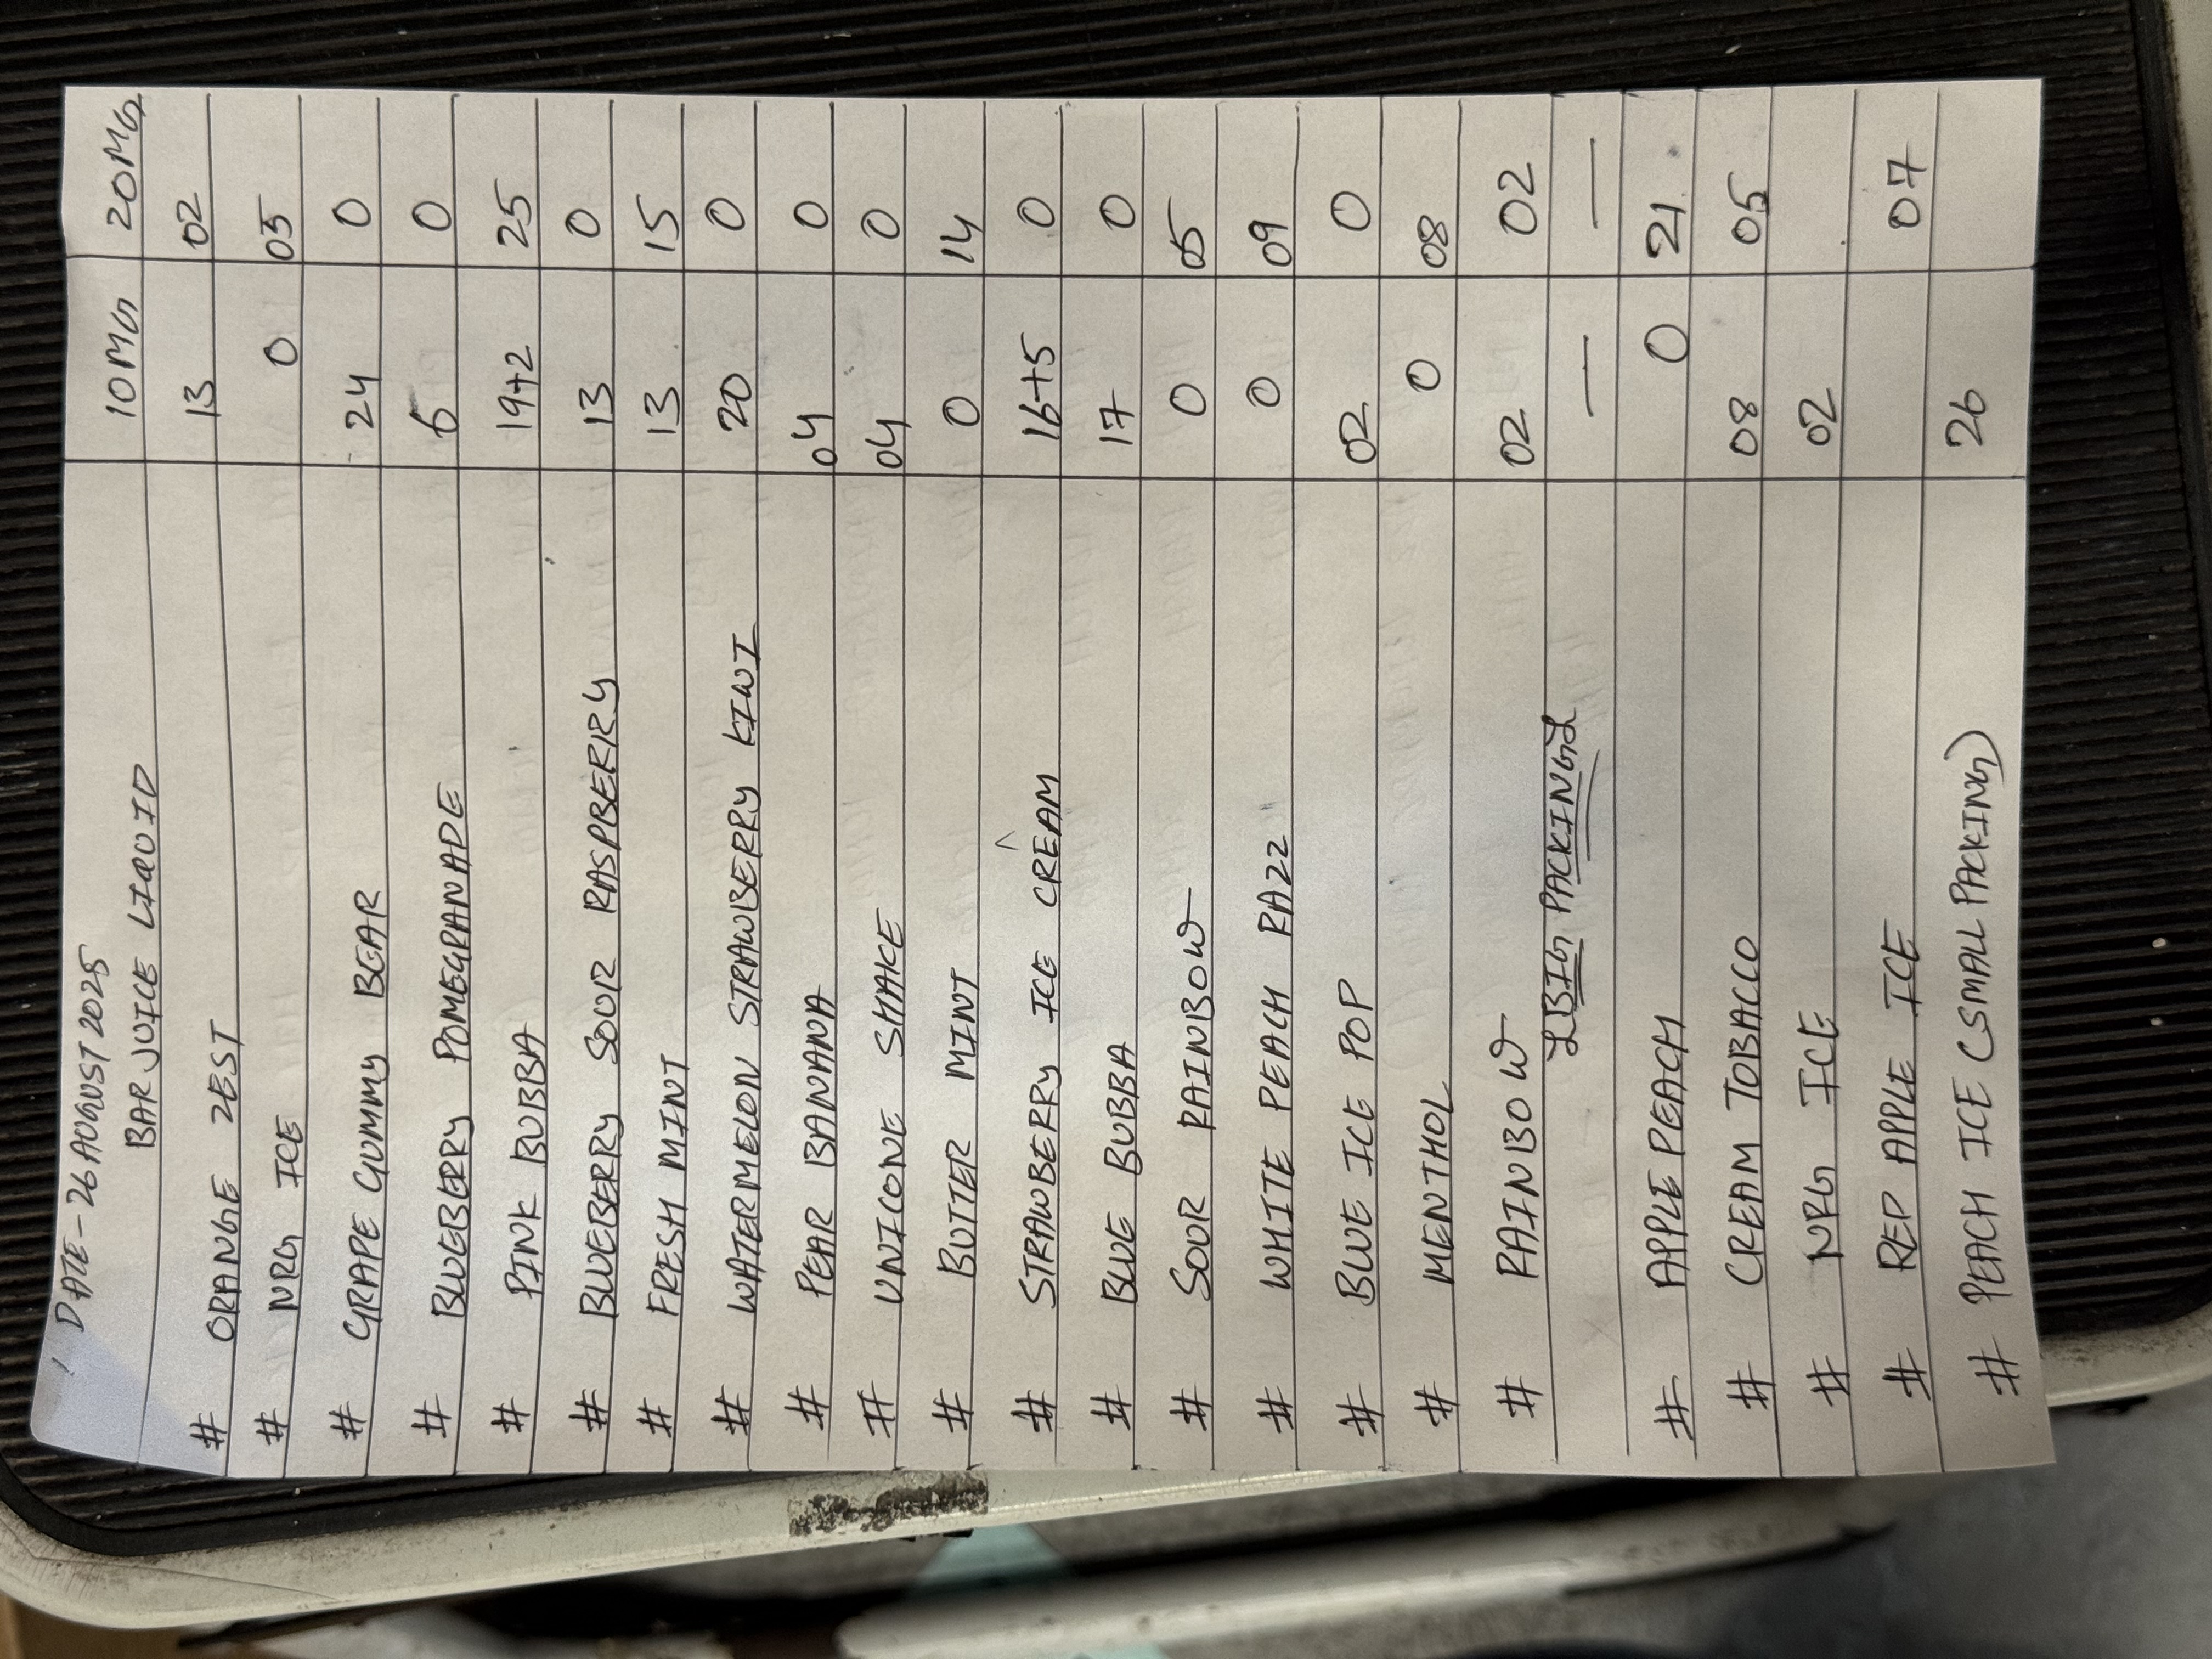 DATE - 26 AUGUST 2025
BAR JUICE LIQUID 10MG 20MG
# ORANGE ZEST 13 02
# NRG ICE 0 03
# GRAPE GUMMY BEAR 24 0
# BLUEBERRY POMEGRANADE 6 0
# PINK BUBBA 19+2 25
# BLUEBERRY SOUR RASPBERRY 13 0
# FRESH MINT 13 15
# WATERMELON STRAWBERRY KIWI 20 0
# PEAR BANANA 04 0
# UNICONE SHAKE 04 0
# BUTTER MINT 0 14
# STRAWBERRY ICE CREAM 16+5 0
# BLUE BUBBA 17 0
# SOUR RAINBOW 0 05
# WHITE PEACH RAZZ 0 09
# BLUE ICE POP 02 0
# MENTHOL 0 08
# RAINBOW 02 02
BIG PACKING — —
# APPLE PEACH 0 21
# CREAM TOBACCO 08 05
# NRG ICE 02
# RED APPLE ICE 07
# PEACH ICE (SMALL PACKING) 26